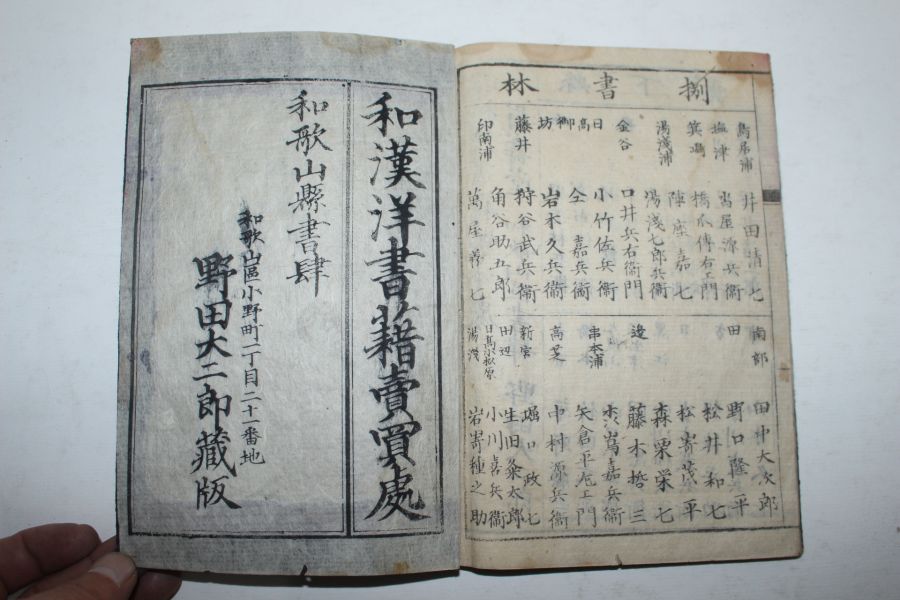 捌書林
鳥居浦 井田清七
塩津 島屋源兵衛
箕嶋 橋爪傳右エ門
陣座嘉七
湯浅浦 湯浅七郎兵衛
金谷 口井兵右衛門
日高御坊 小竹佐兵衛
仝 嘉兵衛
岩本久兵衛
藤井 狩谷武兵衛
角谷助五郎
印南浦 萬屋善七
南部 田中大次郎
田辺 野口隆平
松井和七
松寄茂平
森栗栄七
藤木哲三
串本浦 嘉兵衛
矢倉平左エ門
高芝 中村源兵衛
新宮 堀口政七
田辺 生田粂太郎
日高小松原 小川喜兵衛
湯浅 岩寄種之助
和漢洋書籍賣買處
和歌山縣書肆
和歌山區小野町二丁目二十一番地
野田大二郎藏版